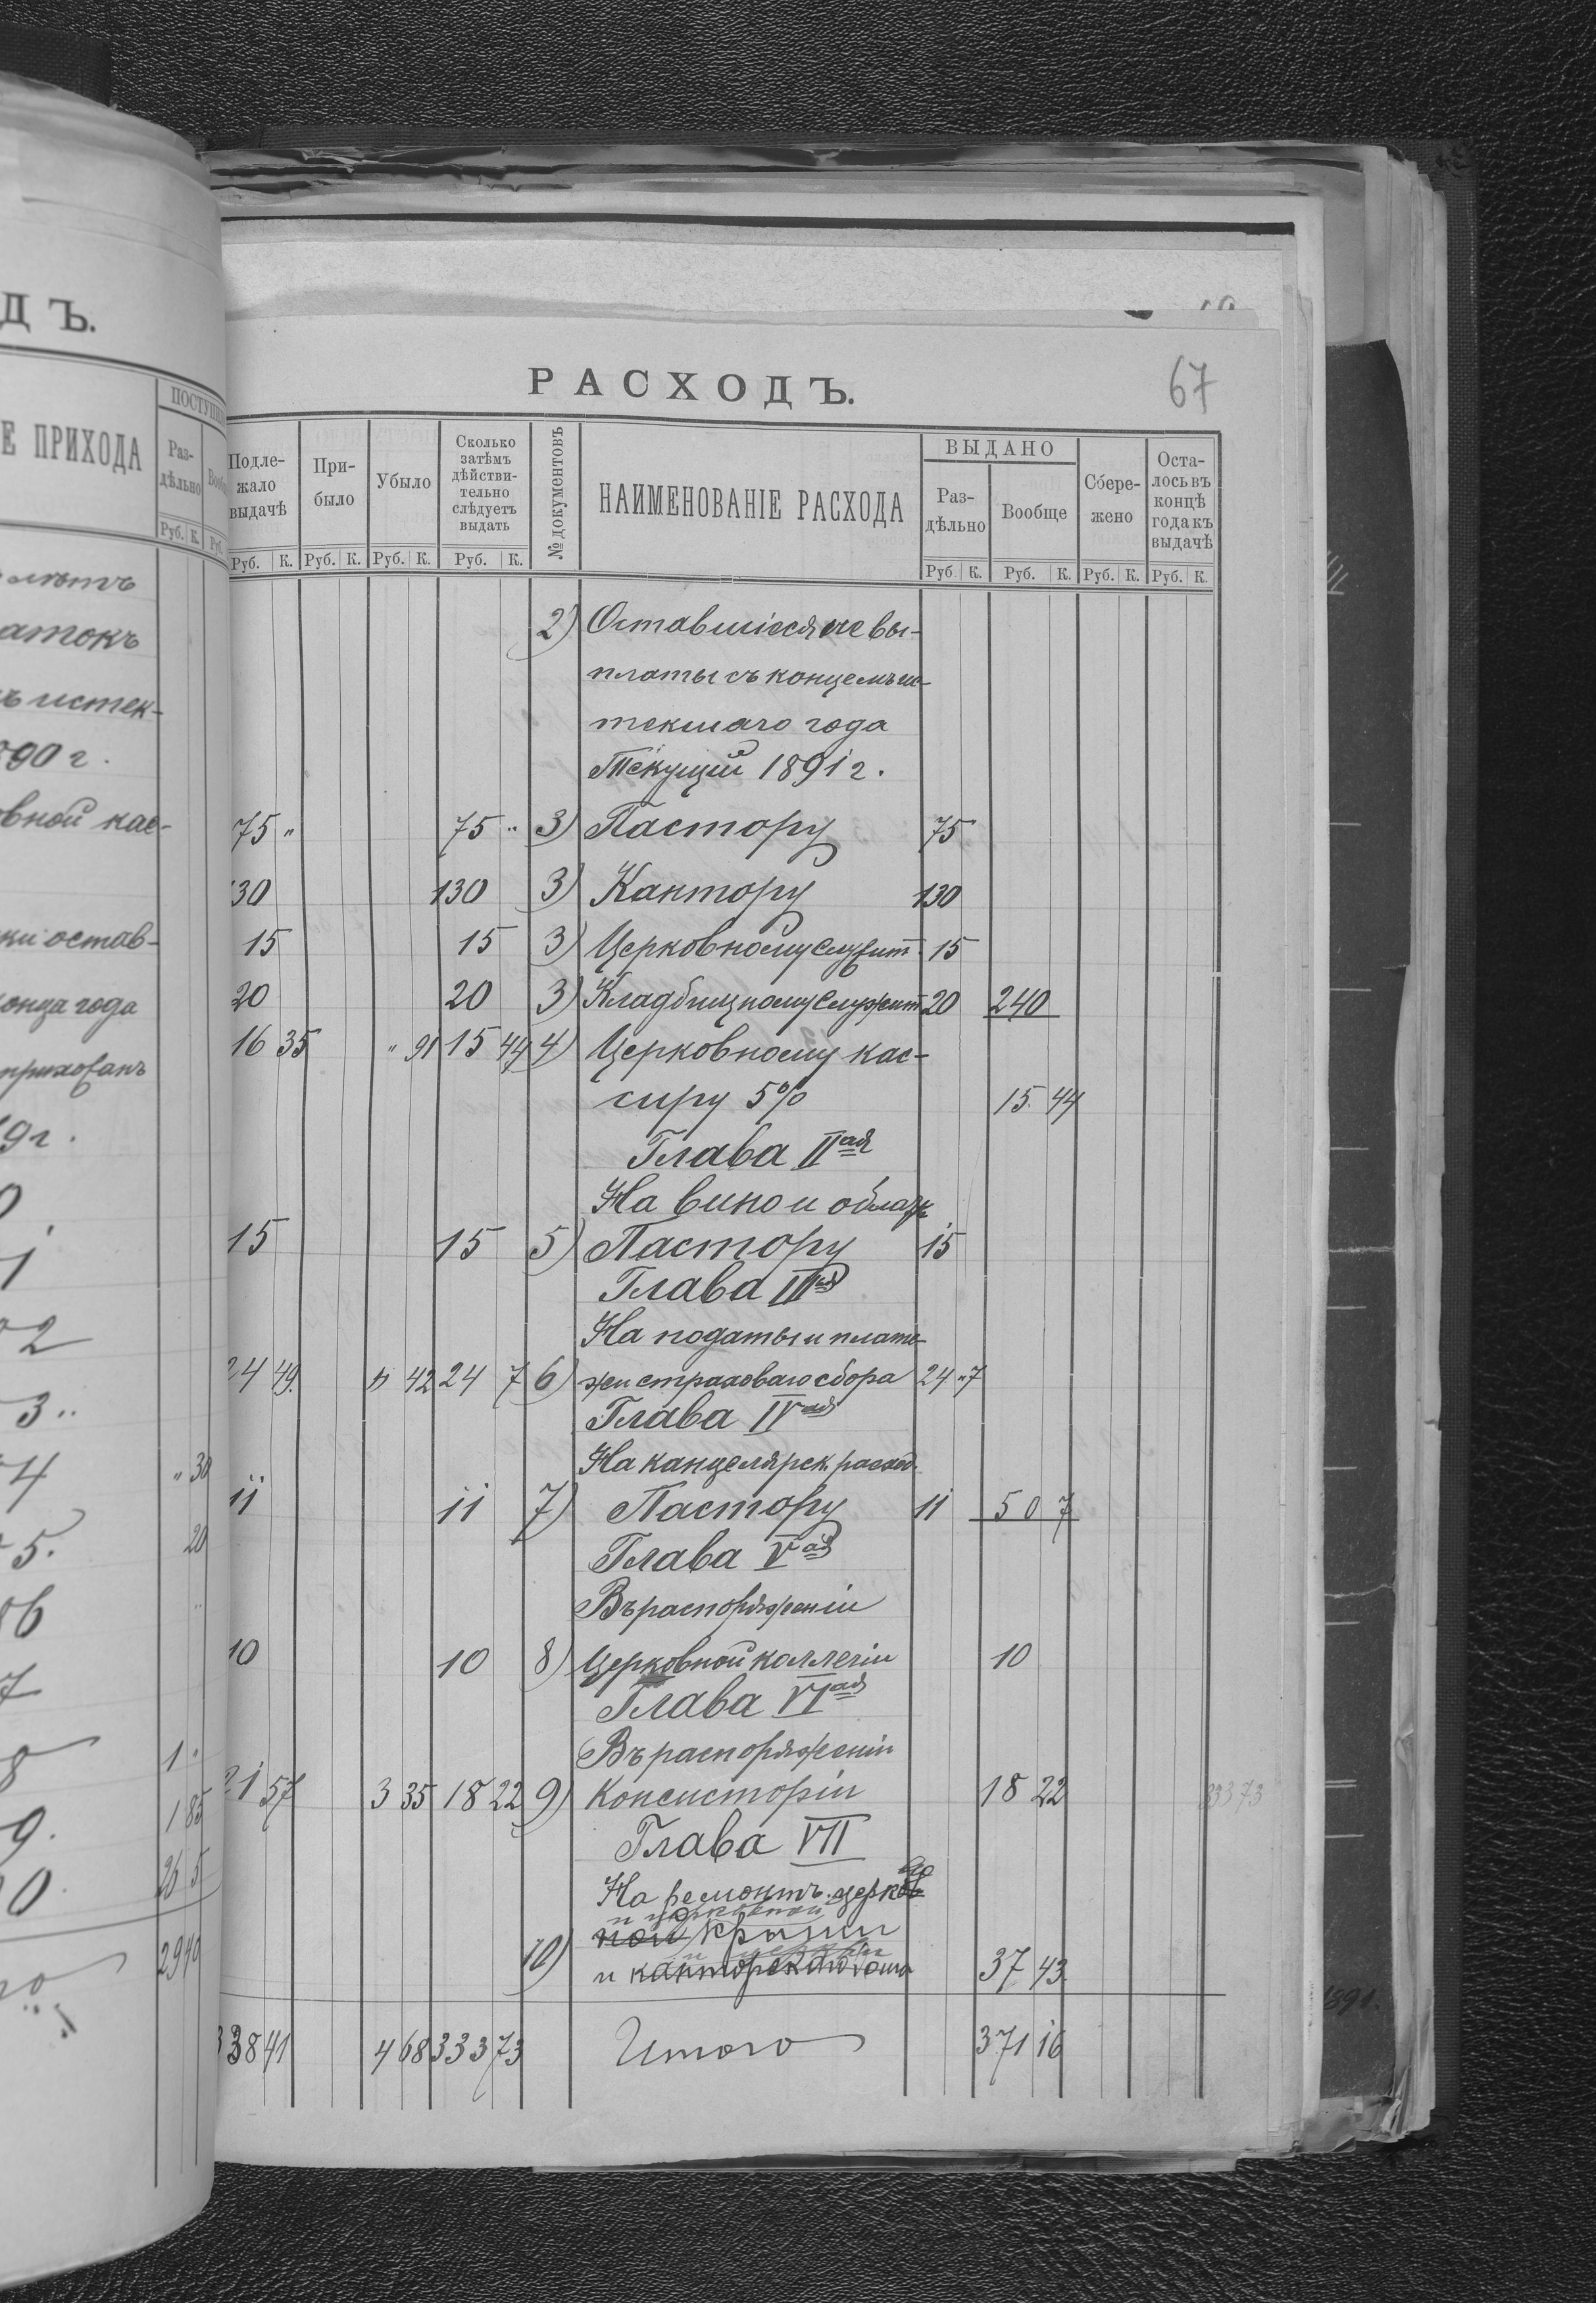 ДЪ.
Е ПРИХОДА
ПОСТУПИ
Раз-
дѣльно
Руб. К. Руб.
атокъ
ъ истек-
90 г.
овной кас-
ки остав-
онца года
прихожанъ
9 г.
" 30
20
1 "
1 85
26 5
29 40
67
РАСХОДЪ.
Подле-
жало
выдачѣ
При-
было
Убыло
Сколько
затѣмъ
дѣйстви-
тельно
слѣдуетъ
выдать
№ документовъ
НАИМЕНОВАНІЕ РАСХОДА
ВЫДАНО
Раз-
дѣльно
Вообще
Сбере-
жено
Оста-
лось въ
концѣ
года къ
выдачѣ
Руб. К. Руб. К. Руб. К. Руб. К. Руб. К. Руб. К. Руб. К. Руб. К.
2) Оставшіеся не вы-
платы съ концемъ ис-
текшаго года
Текущій 1891 г.
75 " 75 " 3) Пастору 75
130 130 3) Кантору 130
15 15 3) Церковному Служит. 15
20 20 3) Кладбищному Служит 20 240
16 35 " 91 15 44 4) Церковному кас-
сиру 5% 15 44
Глава II ая
На вино и облатк
15 15 5) Пастору 15
Глава III ая
На подать и плате-
24 49. " 42 24 7 6) жи страховаго сбора 24 " 7
Глава IV ая
На канцелярск. расход.
11 11 7) Пастору 11 50 7
Глава V ая
Въ распоряженіи
10 10 8) Церковной коллегіи 10
Глава VI ая
Въ распоряженіи
21 57 3 35 18 22 9) Консисторіи 18 22 333 73
Глава VII
На ремонтъ церков
и церковной
ной крыши
10) и канторскаго дома 37 43
338 41 4 68 333 73 Итого 371 16
1891.